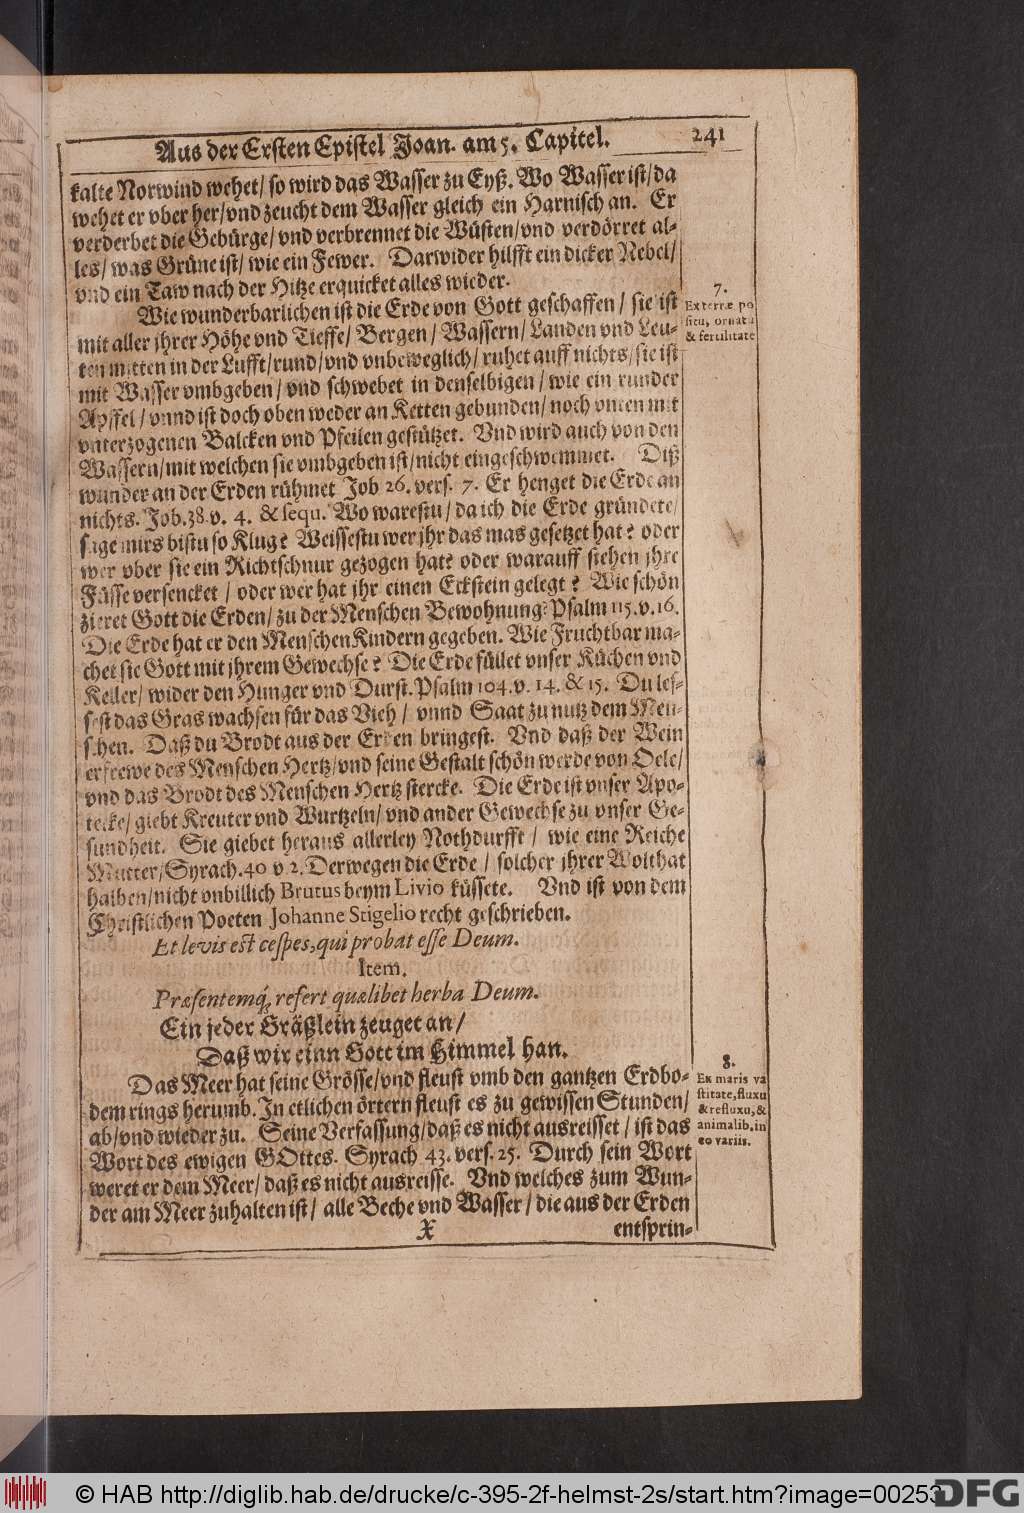 Aus der Ersten Epistel Joan. am 5. Capitel. 241
kalte Norwind wehet/ so wird das Wasser zu Eyß. Wo Wasser ist/ da
wehet er vber her/ vnd zeucht dem Wasser gleich ein Harnisch an. Er
verderbet die Gebürge/ vnd verbrennet die Wüsten/ vnd verdörret al-
les/ was Grüne ist/ wie ein Fewer. Darwider hilfft ein dicker Nebel/
vnd ein Taw nach der Hitze erquicket alles wieder.
Wie wunderbarlichen ist die Erde von Gott geschaffen/ sie ist
mit aller jhrer Höhe vnd Tieffe/ Bergen/ Wassern/ Landen vnd Leu-
ten mitten in der Lufft/ rund/ vnd vnbeweglich/ ruhet auff nichts/ sie ist
mit Wasser vmbgeben/ vnd schwebet in denselbigen/ wie ein runder
Apffel/ vnnd ist doch oben weder an Ketten gebunden/ noch vnten mit
vnterzogenen Balcken vnd Pfeilen gestützet. Vnd wird auch von den
Wassern/ mit welchen sie vmbgeben ist/ nicht eingeschwemmet. Diß
wunder an der Erden rühmet Job 26. vers. 7. Er henget die Erde an
nichts. Job. 38. v. 4. & sequ. Wo warestu/ da ich die Erde gründete/
sage mirs bistu so Klug? Weissestu wer jhr das mas gesetzet hat? oder
wer vber sie ein Richtschnur gezogen hat? oder warauff stehen jhre
Füsse versencket/ oder wer hat jhr einen Eckstein gelegt? Wie schön
zieret Gott die Erden/ zu der Menschen Bewohnung? Psalm 115. v. 16.
Die Erde hat er den Menschen Kindern gegeben. Wie Fruchtbar ma-
chet sie Gott mit jhrem Gewechse? Die Erde füllet vnser Küchen vnd
Keller/ wider den Hunger vnd Durst. Psalm 104. v. 14. & 15. Du les-
sest das Gras wachsen für das Vieh/ vnnd Saat zu nutz dem Men-
schen. Daß du Brodt aus der Erden bringest. Vnd daß der Wein
erfrewe des Menschen Hertz/ vnd seine Gestalt schön werde von Oele/
vnd das Brodt des Menschen Hertz stercke. Die Erde ist vnser Apo-
tecke/ giebt Kreuter vnd Wurtzeln/ vnd ander Gewechse zu vnser Ge-
sundheit. Sie giebet heraus allerley Nothdurfft/ wie eine Reiche
Mutter/ Syrach. 40 v 2. Derwegen die Erde/ solcher jhrer Wolthat
halben/ nicht vnbillich Brutus beym Livio küssete. Vnd ist von dem
Christlichen Poeten Johanne Stigelio recht geschrieben.
Et levis est cespes, qui probat esse Deum.
Item.
Præsentemq́; refert quælibet herba Deum.
Ein jeder Gräßlein zeuget an/
Daß wir einn Gott im Himmel han.
Das Meer hat seine Grösse/ vnd fleust vmb den gantzen Erdbo-
dem rings herumb. In etlichen örtern fleust es zu gewissen Stunden/
ab/ vnd wieder zu. Seine Verfassung/ daß es nicht ausreisset/ ist das
Wort des ewigen GOttes. Syrach 43. vers. 25. Durch sein Wort
weret er dem Meer/ daß es nicht ausreisse. Vnd welches zum Wun-
der am Meer zuhalten ist/ alle Beche vnd Wasser/ die aus der Erden
X entsprin-
7.
Ex terræ po
situ, ornatu
& fertilitate
8.
Ex maris va
stitate, fluxu
& refluxu, &
animalib. in
eo variis.
© HAB http://diglib.hab.de/drucke/c-395-2f-helmst-2s/start.htm?image=00253
DFG